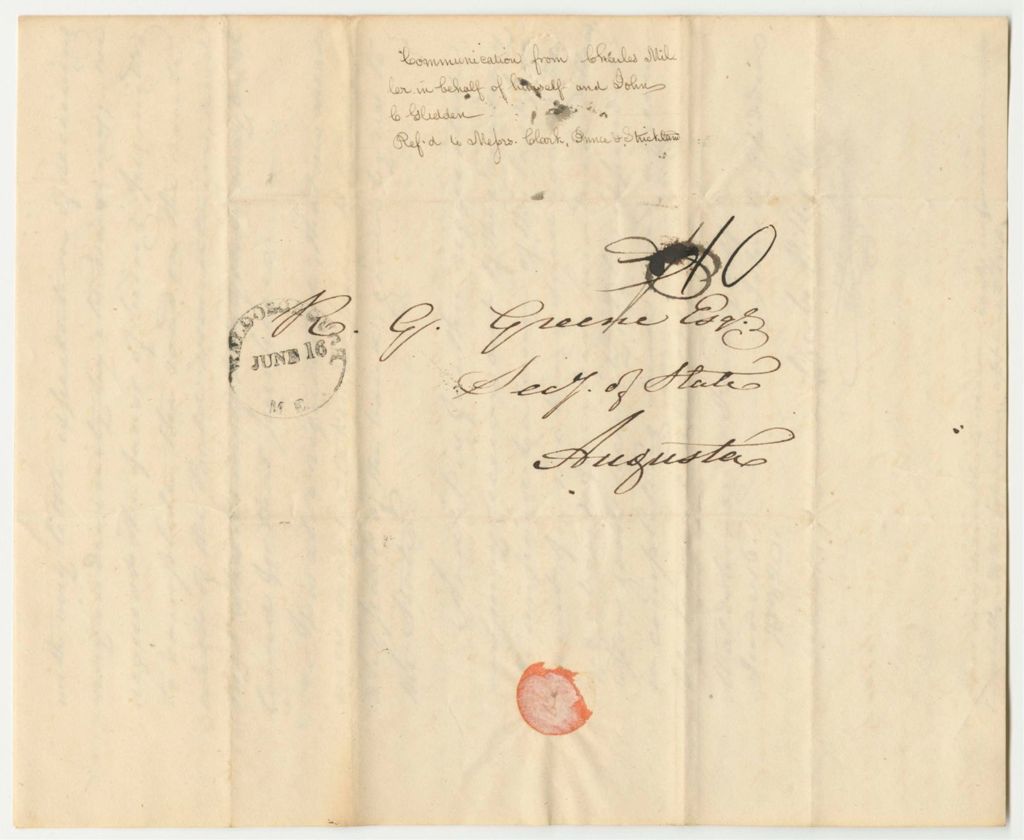 Communication from Charles Mil-
ler in behalf of himself and John
C Glidden
Ref.d to Messrs. Clark, Prince & Strickland
10
R. G. Greene Esqr.
Secy. of State
Augusta
WALDOBORO
JUNE 16
ME.